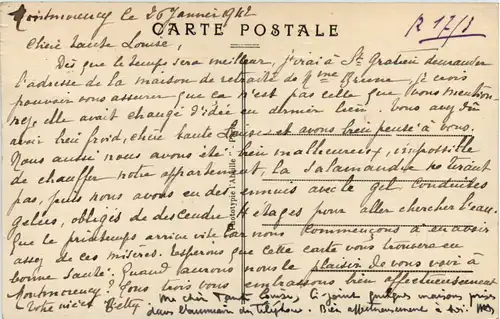 Montmorency le 26 Janvier 1942
R 17/3
CARTE POSTALE
Chère tante Louise,
Dès que le temps sera meilleur, j'irai à St Gratien demander
l'adresse de la maison de retraite de Mme Brune, je crois
pouvoir vous assurer que ça n'est pas celle que vous mention
nez, elle avait changé d'idée en dernier lieu. Vous avez dû
avoir bien froid, chère tante Louise et avons bien pensé à vous.
Nous aussi nous avons été bien malheureux, impossible
de chauffer notre appartement, la Salamandre ne tirait
pas, puis nous avons eu des ennuis avec le gel, conduites
gelées, obligés de descendre 4 étages pour aller chercher l'eau.
Que le printemps arrive vite car nous commençons à en avoir
assez de ces misères. Espérons que cette carte vous trouvera en
bonne santé. Quand aurons nous le plaisir de vous voir à
Montmorency? Tous trois vous embrassons bien affectueusement
Votre nièce Betty
Ma chère Tante Louise, ci joint quelques mots pris
dans l'annuaire du téléphone. Bien affectueusement à toi.
Phototypie l'Abeille